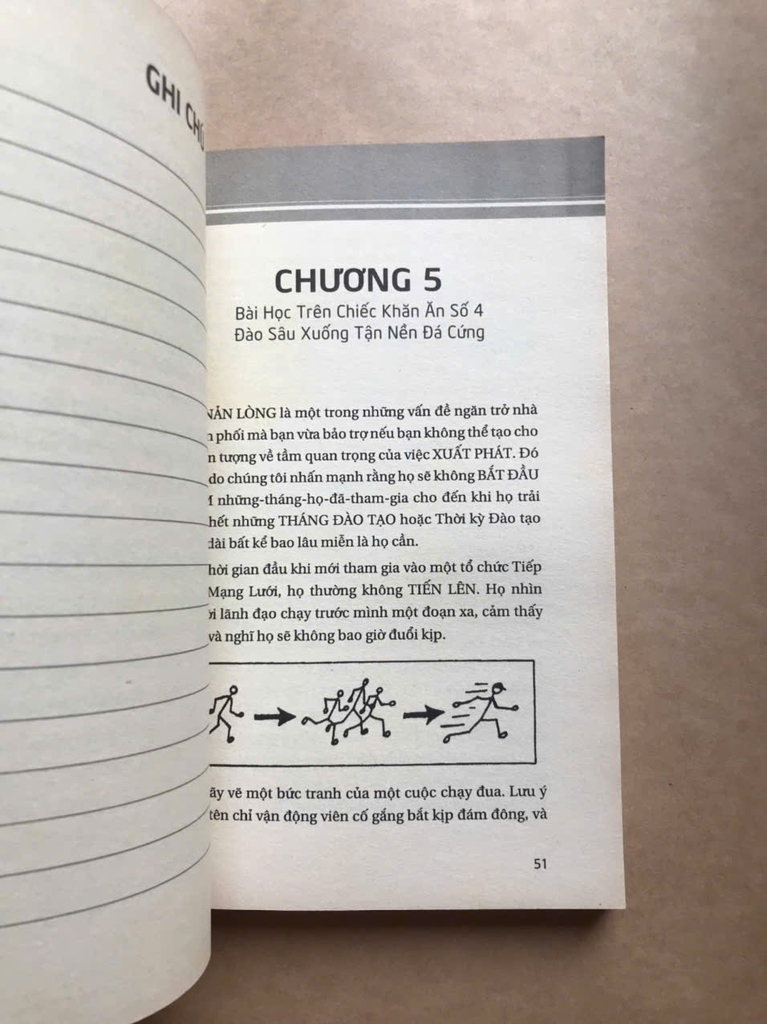 GHI CHÚ
CHƯƠNG 5
Bài Học Trên Chiếc Khăn Ăn Số 4
Đào Sâu Xuống Tận Nền Đá Cứng
NẢN LÒNG là một trong những vấn đề ngăn trở nhà
phối mà bạn vừa bảo trợ nếu bạn không thể tạo cho
tượng về tầm quan trọng của việc XUẤT PHÁT. Đó
do chúng tôi nhấn mạnh rằng họ sẽ không BẮT ĐẦU
những-tháng-họ-đã-tham-gia cho đến khi họ trải
hết những THÁNG ĐÀO TẠO hoặc Thời kỳ Đào tạo
dài bất kể bao lâu miễn là họ cần.
hời gian đầu khi mới tham gia vào một tổ chức Tiếp
Mạng Lưới, họ thường không TIẾN LÊN. Họ nhìn
lãnh đạo chạy trước mình một đoạn xa, cảm thấy
và nghĩ họ sẽ không bao giờ đuổi kịp.
ãy vẽ một bức tranh của một cuộc chạy đua. Lưu ý
tên chỉ vận động viên cố gắng bắt kịp đám đông, và
51